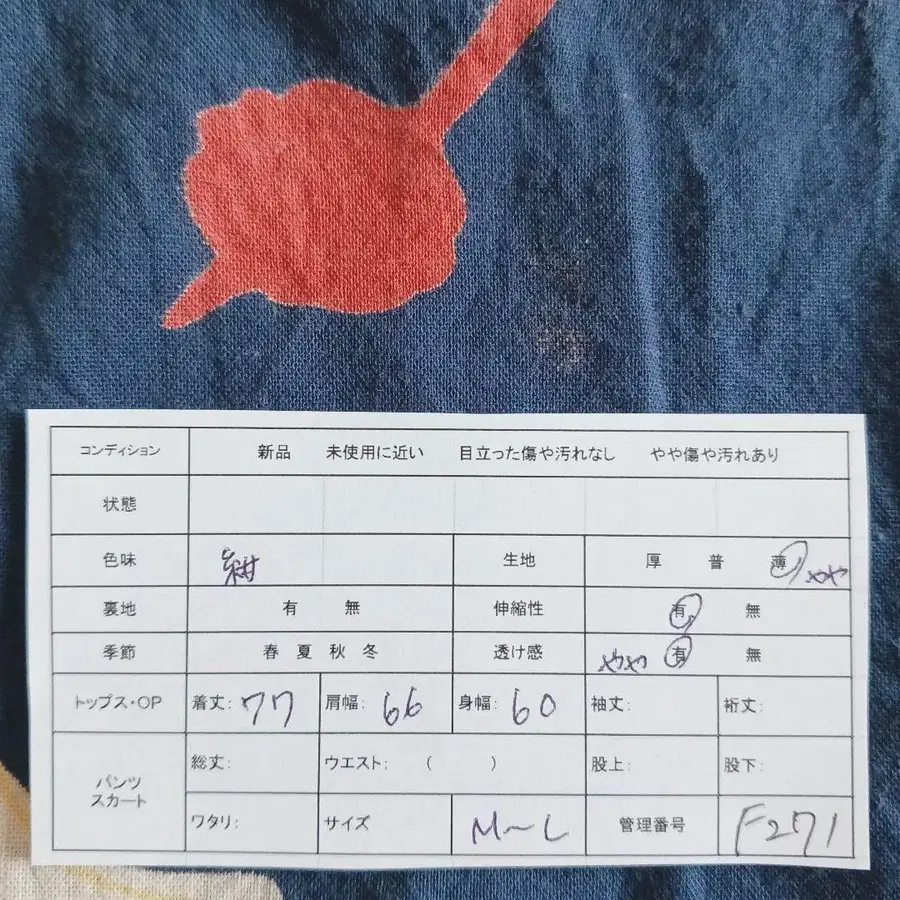 コンディション 新品 未使用に近い 目立った傷や汚れなし やや傷や汚れあり
状態
色味 紺 生地 厚 普 薄 やや
裏地 有 無 伸縮性 有 無
季節 春 夏 秋 冬 透け感 やや 有 無
トップス・OP 着丈: 77 肩幅: 66 身幅: 60 袖丈: 裄丈:
パンツ スカート 総丈: ウエスト: ( ) 股上: 股下:
ワタリ: サイズ M〜L 管理番号 F271